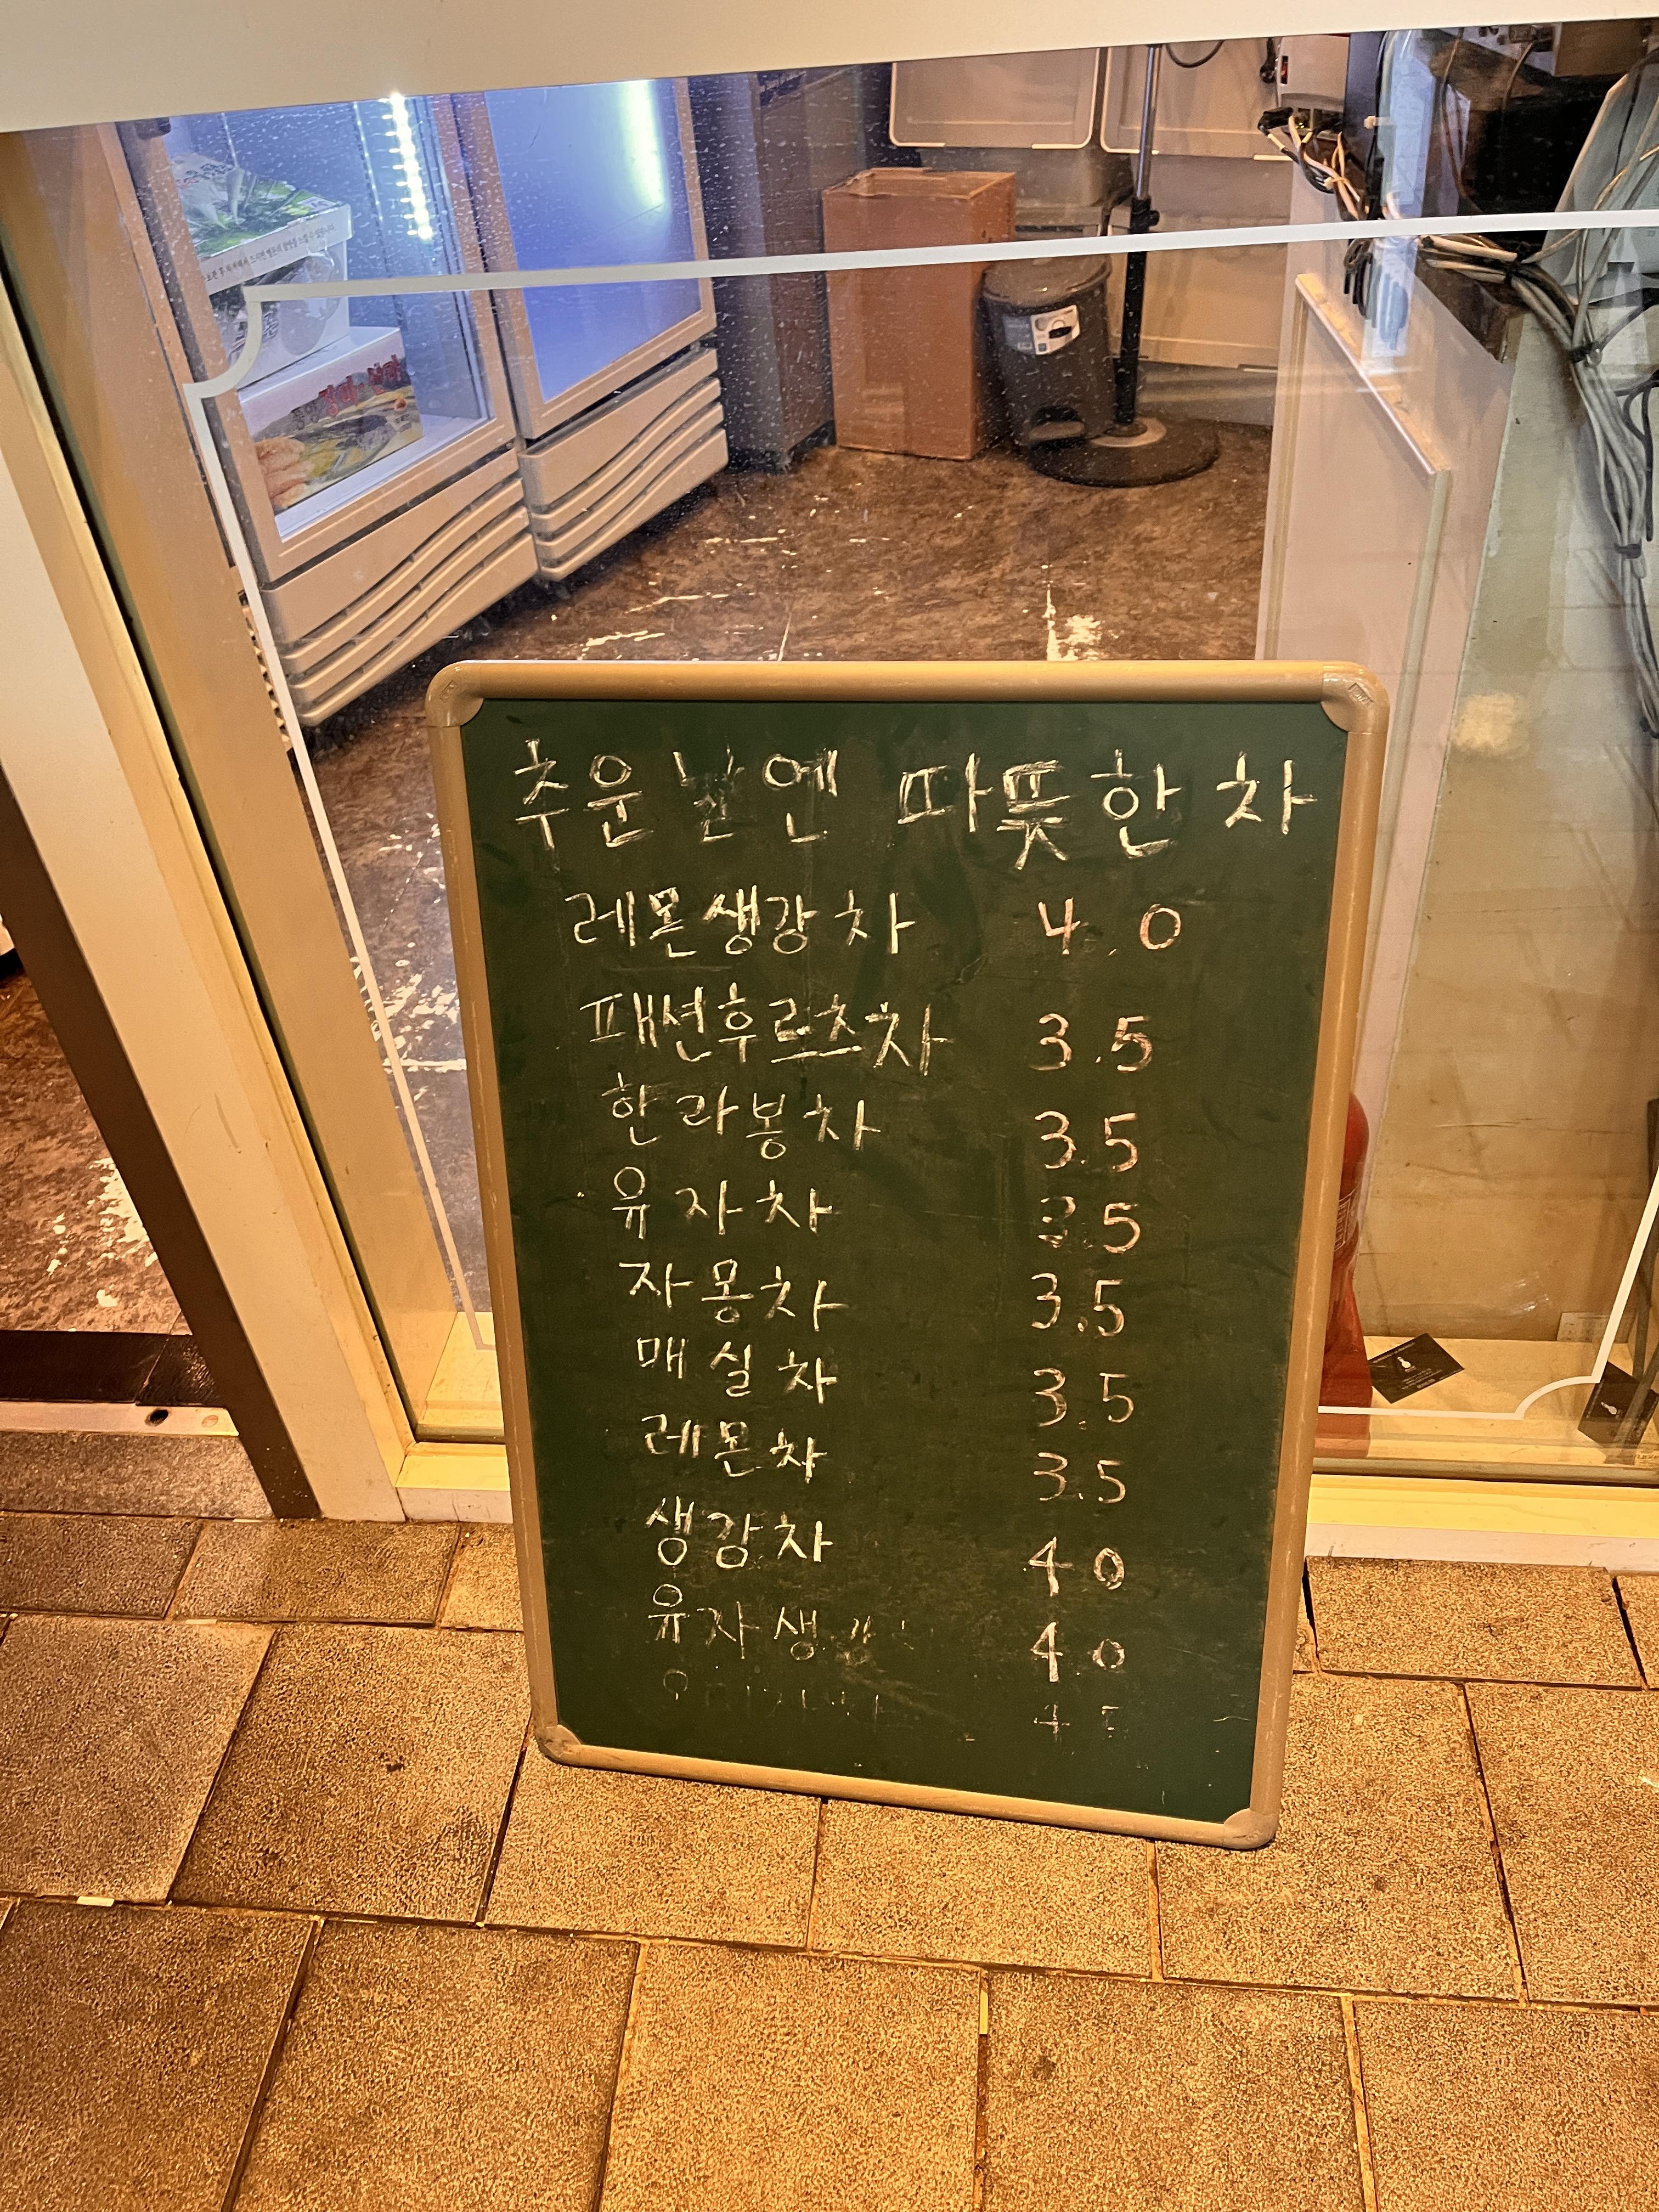 추운 날엔 따뜻한 차
레몬생강차 4.0
패션후르츠차 3.5
한라봉차 3.5
유자차 3.5
자몽차 3.5
매실차 3.5
레몬차 3.5
생강차 4.0
유자생 4.0